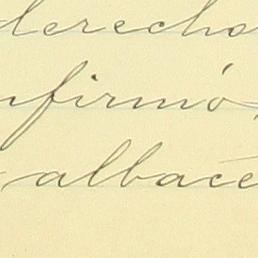 derecho
nfirmó,
albace